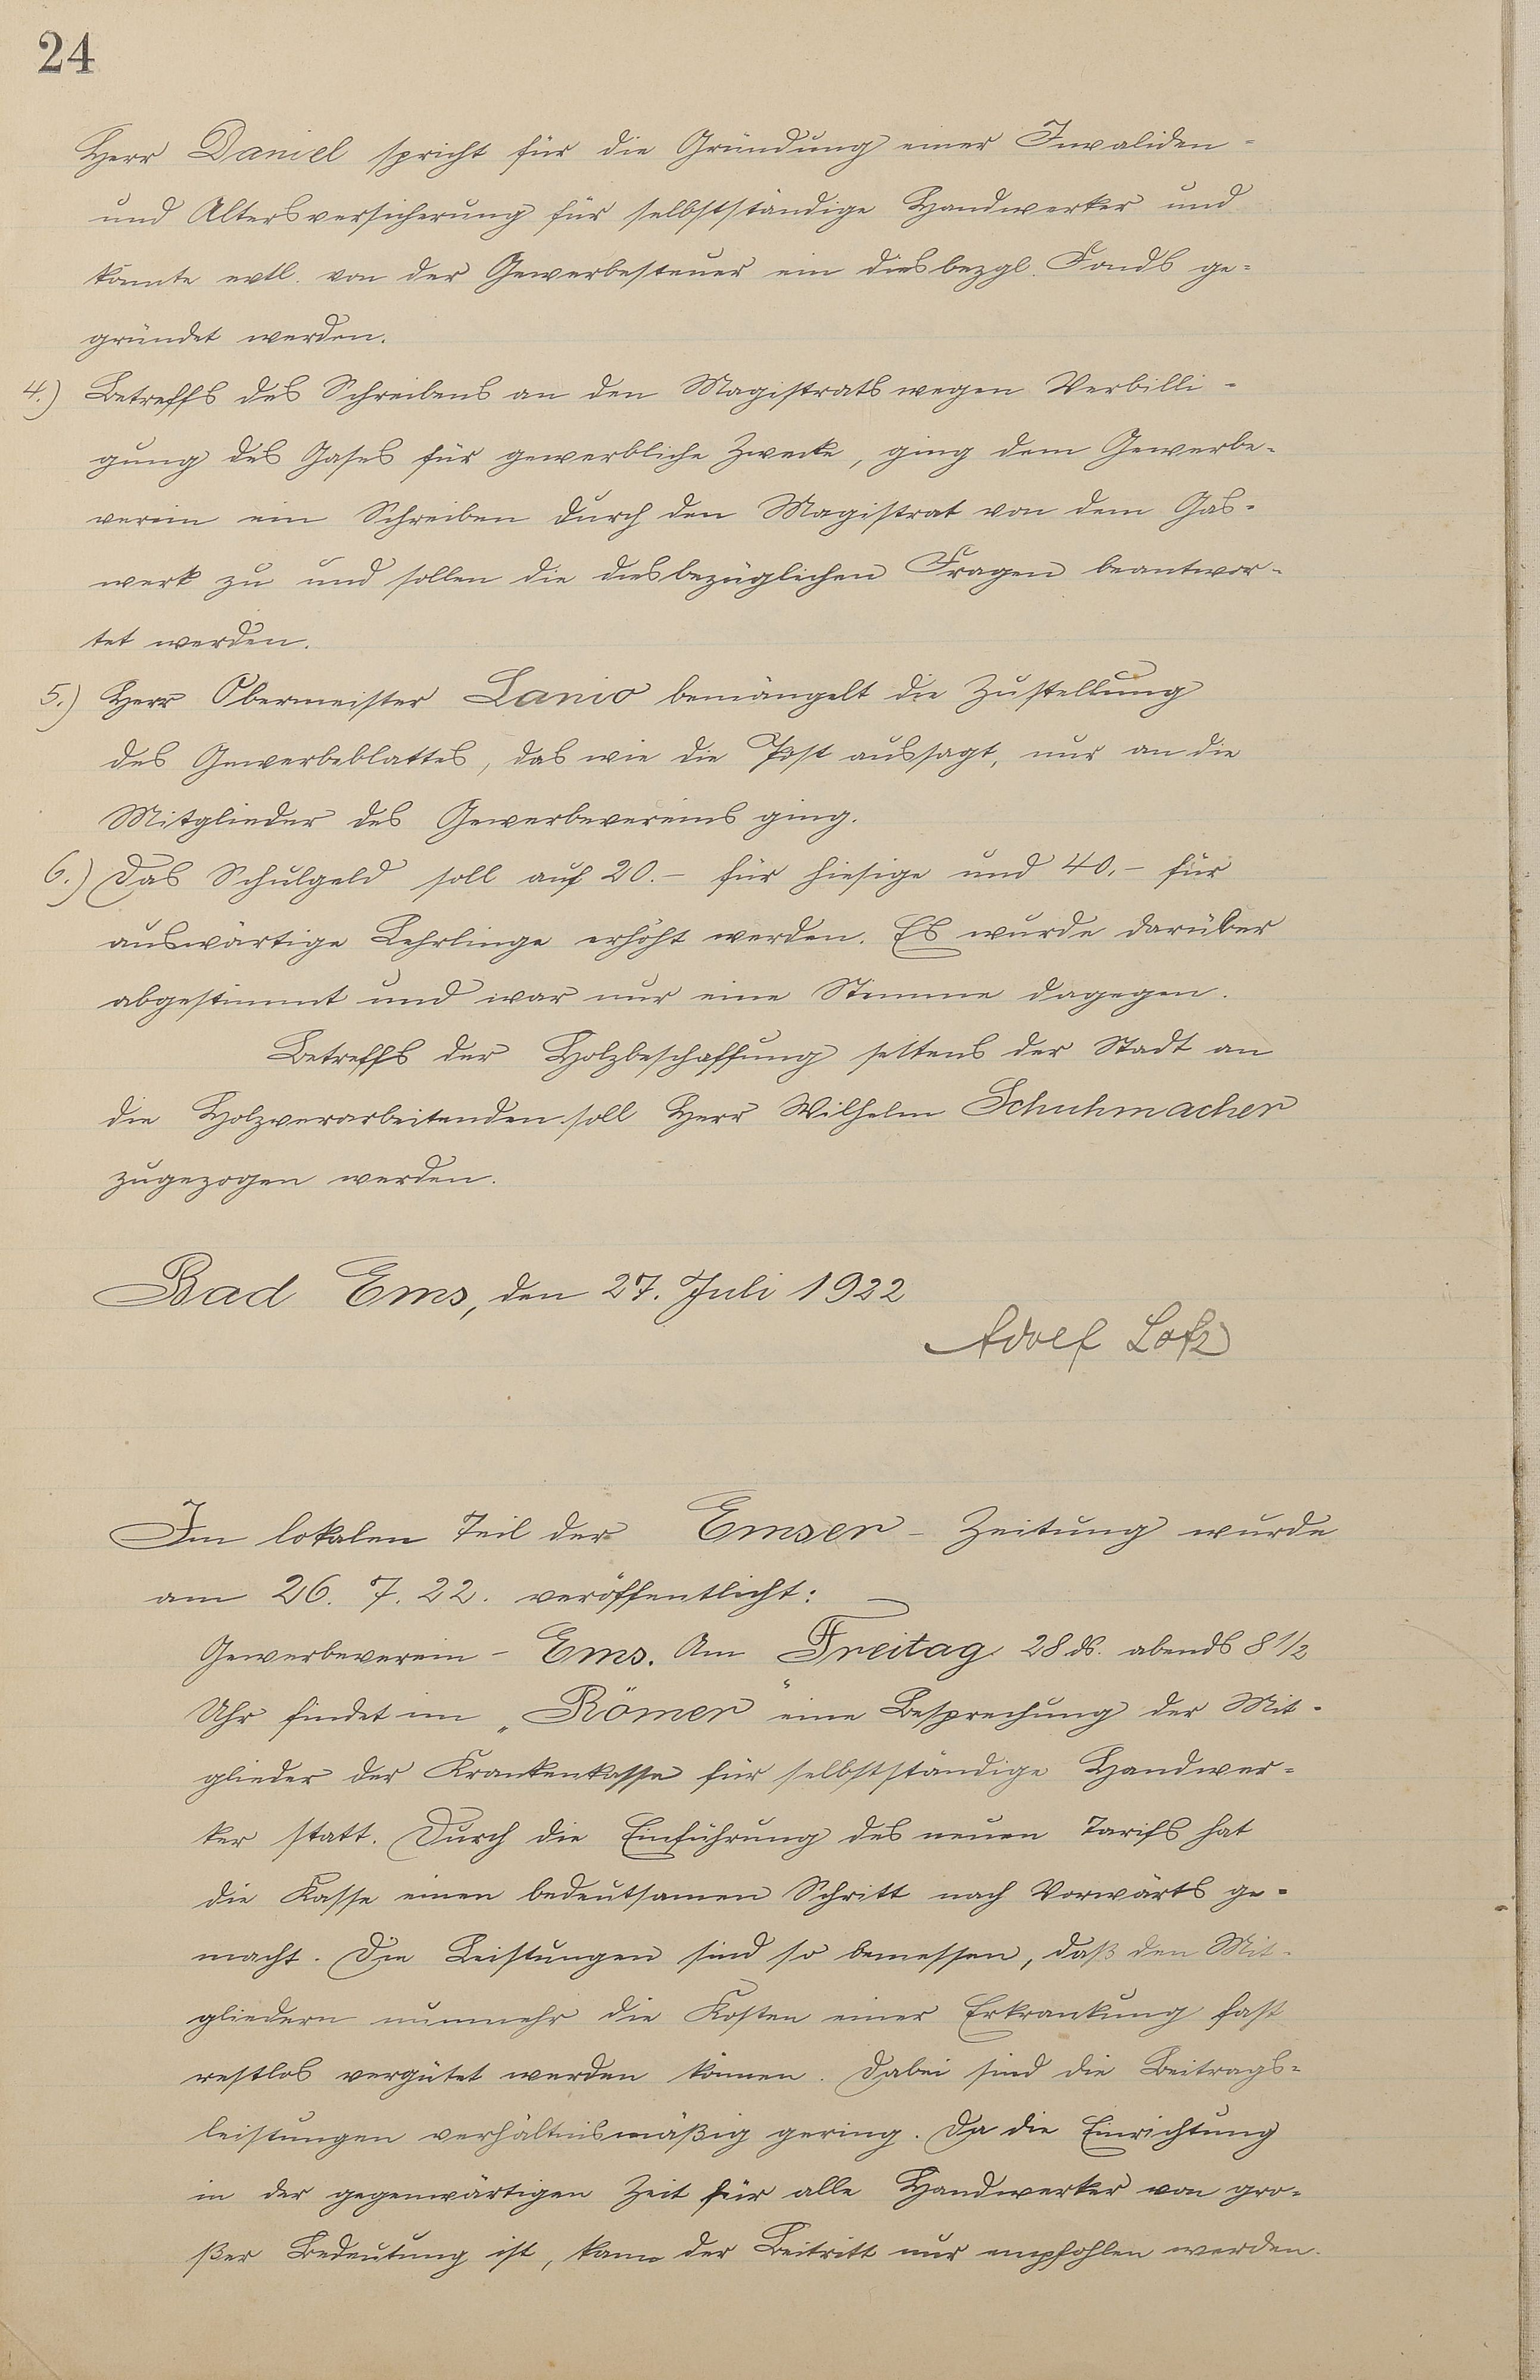 24
Herr Daniel spricht für die Gründung einer Invaliden-
und Altersversicherung für selbstständige Handwerker und
könnte evtl. von der Gewerbesteuer ein diesbezgl. Fonds ge-
gründet werden.
4.) Betreffs des Schreibens an den Magistrats wegen Verbilli-
gung des Gases für gewerbliche Zwecke, ging dem Gewerbe-
verein ein Schreiben durch den Magistrat von dem Gas-
werk zu und sollen die diesbezüglichen Fragen beantwor-
tet werden.
5.) Herr Obermeister Lanio bemängelt die Zustellung
des Gewerbeblattes, das wie die Post aussagt, nur an die
Mitglieder des Gewerbevereins ging.
6.) Das Schulgeld soll auf 20.- für hiesige und 40.- für
auswärtige Lehrlinge erhöht werden. Es wurde darüber
abgestimmt und war nur eine Stimme dagegen.
Betreffs der Holzbeschaffung seitens der Stadt an
die Holzverarbeitenden soll Herr Wilhelm Schuhmacher
zugezogen werden.
Bad Ems, den 27. Juli 1922
Adolf Lotz
Im lokalen Teil der Emser-Zeitung wurde
am 26. 7. 22. veröffentlicht:
Gewerbeverein - Ems. Am Freitag 28 ds. abends 8 1/2
Uhr findet im „Römer" eine Besprechung der Mit-
glieder der Krankenkasse für selbstständige Handwer-
ker statt. Durch die Einführung des neuen Tarifs hat
die Kasse einen bedeutsamen Schritt nach Vorwärts ge-
macht. Die Leistungen sind so bemessen, daß den Mit-
gliedern nunmehr die Kosten einer Erkrankung fast
restlos vergütet werden können. Dabei sind die Beitrags-
leistungen verhältnismäßig gering. Da die Einrichtung
in der gegenwärtigen Zeit für alle Handwerker von gro-
ßer Bedeutung ist, kann der Beitritt nur empfohlen werden.